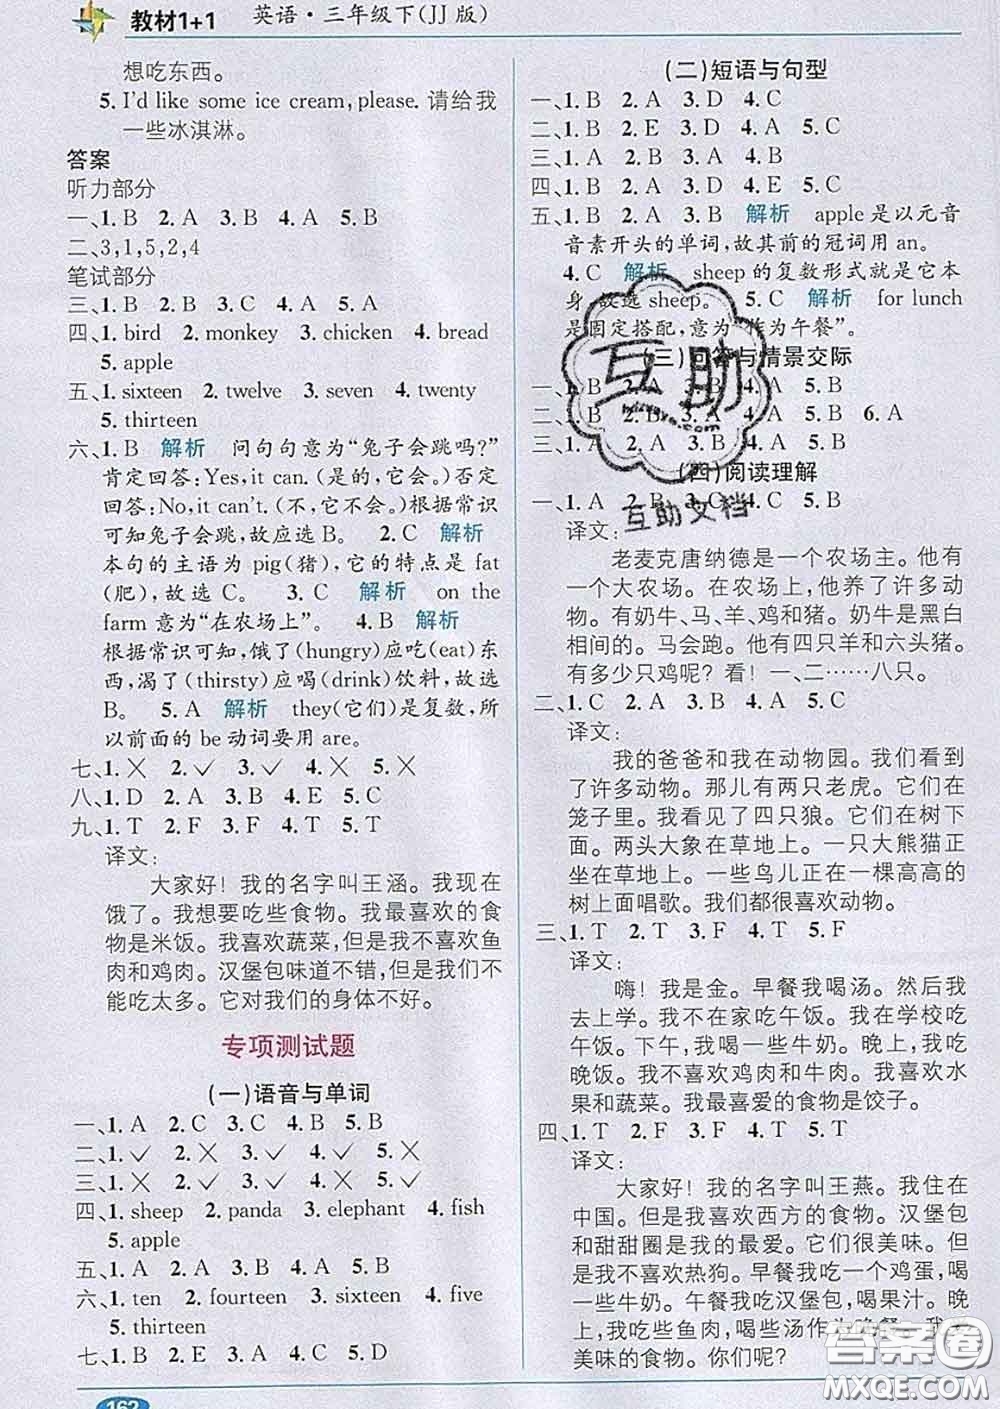 教材1+1 英语·三年级下(JJ版)
想吃东西。
5. I'd like some ice cream, please. 请给我
一些冰淇淋。
答案
听力部分
一、1. B 2. A 3. B 4. A 5. B
二、3,1,5,2,4
笔试部分
三、1. B 2. B 3. C 4. A 5. A
四、1. bird 2. monkey 3. chicken 4. bread
5. apple
五、1. sixteen 2. twelve 3. seven 4. twenty
5. thirteen
六、1. B 解析 问句句意为“兔子会跳吗?”
肯定回答:Yes,it can. (是的,它会。)否定
回答:No,it can't. (不,它不会。)根据常识
可知兔子会跳,故应选B。 2. C 解析
本句的主语为pig(猪),它的特点是fat
(肥),故选C。 3. C 解析 on the
farm意为“在农场上”。 4. B 解析
根据常识可知,饿了(hungry)应吃(eat)东
西,渴了(thirsty)应喝(drink)饮料,故选
B。 5. A 解析 they(它们)是复数,所
以前面的be动词要用are。
七、1. ✗ 2. ✓ 3. ✓ 4. ✗ 5. ✗
八、1. D 2. A 3. B 4. E 5. C
九、1. T 2. F 3. F 4. T 5. T
译文:
大家好!我的名字叫王涵。我现在
饿了。我想要吃些食物。我最喜欢的食
物是米饭。我喜欢蔬菜,但是我不喜欢鱼
肉和鸡肉。汉堡包味道不错,但是我们不
能吃太多。它对我们的身体不好。
专项测试题
(一)语音与单词
一、1. A 2. C 3. C 4. B 5. B
二、1. ✓ 2. ✗ 3. ✗ 4. ✓ 5. ✓
三、1. ✗ 2. ✓ 3. ✓ 4. ✗ 5. ✓
四、1. sheep 2. panda 3. elephant 4. fish
5. apple
五、1. A 2. A 3. B 4. A 5. A
六、1. ten 2. fourteen 3. sixteen 4. five
5. thirteen
七、1. B 2. E 3. A 4. C 5. D
162
(二)短语与句型
一、1. B 2. A 3. D 4. C
二、1. B 2. E 3. D 4. A 5. C
三、1. A 2. B 3. A 4. A 5. B
四、1. B 2. A 3. D 4. E 5. C
五、1. A 2. A 3. B 解析 apple是以元音
音素开头的单词,故其前的冠词用an。
4. C 解析 sheep的复数形式就是它本
身,故选sheep。 5. C 解析 for lunch
是固定搭配,意为“作为午餐”。
(三)问答与情景交际
一、1. B 2. A 3. A 4. A 5. B
二、1. B 2. B 3. A 4. B 5. B 6. A
三、1. A 2. A 3. B 4. A 5. B
(四)阅读理解
一、1. A 2. B 3. C 4. C 5. A
译文:
老麦克唐纳德是一个农场主。他有
一个大农场。在农场上,他养了许多动
物。有奶牛、马、羊、鸡和猪。奶牛是黑白
相间的。马会跑。他有四只羊和六头猪。
有多少只鸡呢?看!一、二……八只。
二、1. C 2. A 3. A 4. B 5. C
译文:
我的爸爸和我在动物园。我们看到
了许多动物。那儿有两只老虎。它们在
笼子里。我们看见了四只狼。它们在树下
面。两头大象在草地上。一只大熊猫正
坐在草地上。一些鸟儿正在一棵高高的
树上面唱歌。我们都很喜欢动物。
三、1. T 2. T 3. F 4. T 5. F
译文:
嗨!我是金。早餐我喝汤。然后我
去上学。我不在家吃午饭。我在学校吃
午饭。下午,我喝一些牛奶。晚上,我吃
晚饭。我不喜欢鸡肉和牛肉。我喜欢水
果和蔬菜。我最喜爱的食物是饺子。
四、1. T 2. F 3. F 4. T 5. T
译文:
大家好!我的名字叫王燕。我住在
中国。但是我喜欢西方的食物。汉堡包
和甜甜圈是我的最爱。它们很美味。但是
我不喜欢热狗。早餐我吃一个鸡蛋,喝
一些牛奶。午餐我吃汉堡包,喝果汁。晚
上,我吃些鱼肉,喝些汤作为晚餐。我
美味的食物。你们呢?
互助
互助文档
答案圈
MXQE.COM